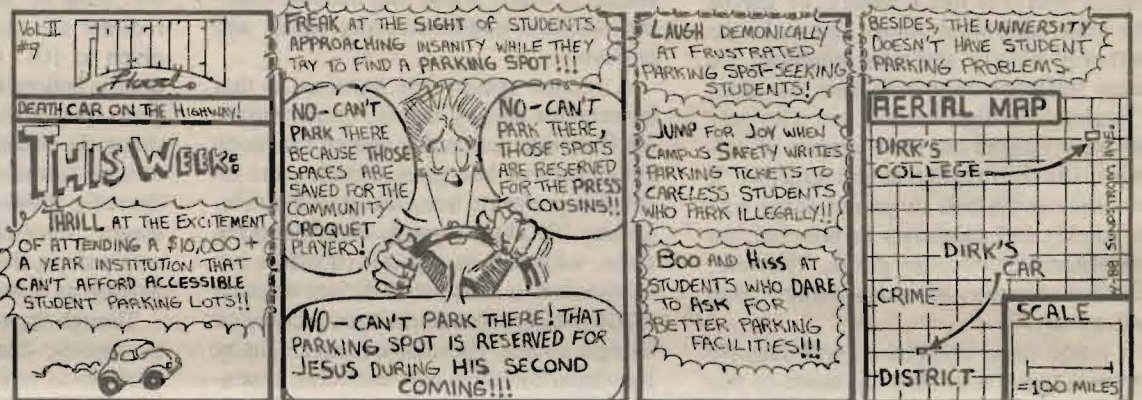 VOL II
#9
DEATH CAR ON THE HIGHWAY!
THIS WEEK:
THRILL AT THE EXCITEMENT
OF ATTENDING A $10,000+
A YEAR INSTITUTION THAT
CAN'T AFFORD ACCESSIBLE
STUDENT PARKING LOTS!!
FREAK AT THE SIGHT OF STUDENTS
APPROACHING INSANITY WHILE THEY
TRY TO FIND A PARKING SPOT!!!
NO-CAN'T
PARK THERE
BECAUSE THOSE
SPACES ARE
SAVED FOR THE
COMMUNITY
CROQUET
PLAYERS!
NO-CAN'T
PARK THERE,
THOSE SPOTS
ARE RESERVED
FOR THE PRESS
COUSINS!!
NO-CAN'T PARK THERE! THAT
PARKING SPOT IS RESERVED FOR
JESUS DURING HIS SECOND
COMING!!!
LAUGH DEMONICALLY
AT FRUSTRATED
PARKING SPOT-SEEKING
STUDENTS!
JUMP FOR JOY WHEN
CAMPUS SAFETY WRITES
PARKING TICKETS TO
CARELESS STUDENTS
WHO PARK ILLEGALLY!!
BOO AND HISS AT
STUDENTS WHO DARE
TO ASK FOR
BETTER PARKING
FACILITIES!!!
BESIDES, THE UNIVERSITY
DOESN'T HAVE STUDENT
PARKING PROBLEMS.
AERIAL MAP
DIRK'S
COLLEGE
DIRK'S
CAR
CRIME
DISTRICT
SCALE
=100 MILES
SUNDSTROM INC.